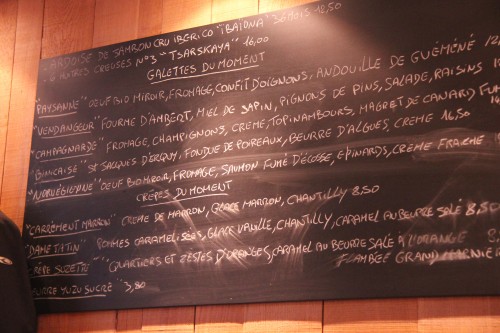 ARDOISE DE JAMBON CRU IBERICO "IBAÏONA" 3 DEMIS 12,50
6 HUITRES CREUSES N°3 "TSARSKAYA" 16,00
GALETTES DU MOMENT
"PAYSANNE" OEUF BIO MIROIR, FROMAGE, CONFIT D'OIGNONS, ANDOUILLE DE GUÉMÉNÉ 12,
"VENDANGEUR" FOURME D'AMBERT, MIEL DE SAPIN, PIGNONS DE PINS, SALADE, RAISINS 10
"CAMPAGNARDE" FROMAGE, CHAMPIGNONS, CREME, TOPINAMBOURS, MAGRET DE CANARD FUM
ST JACQUES D'ERQUY, FONDUE DE POIREAUX, BEURRE D'ALGUES, CREME 16,50
"NORVÉGIENNE" OEUF BIO MIROIR, FROMAGE, SAUMON FUMÉ D'ÉCOSSE, EPINARDS, CRÈME FRAÎCHE
CRÊPES DU MOMENT
"CARRÉMENT MARRON" CREME DE MARRON, GLACE MARRON, CHANTILLY 8,50
"DAME TATIN" POMMES CARAMELISÉES, GLACE VANILLE, CHANTILLY, CARAMEL AU BEURRE SALÉ 8,50
CRÊPE SUZETTE "QUARTIERS ET ZESTES D'ORANGES, CARAMEL AU BEURRE SALÉ A L'ORANGE
FLAMBÉE GRAND MARNIE
BEURRE YUZU SUCRE 3,80